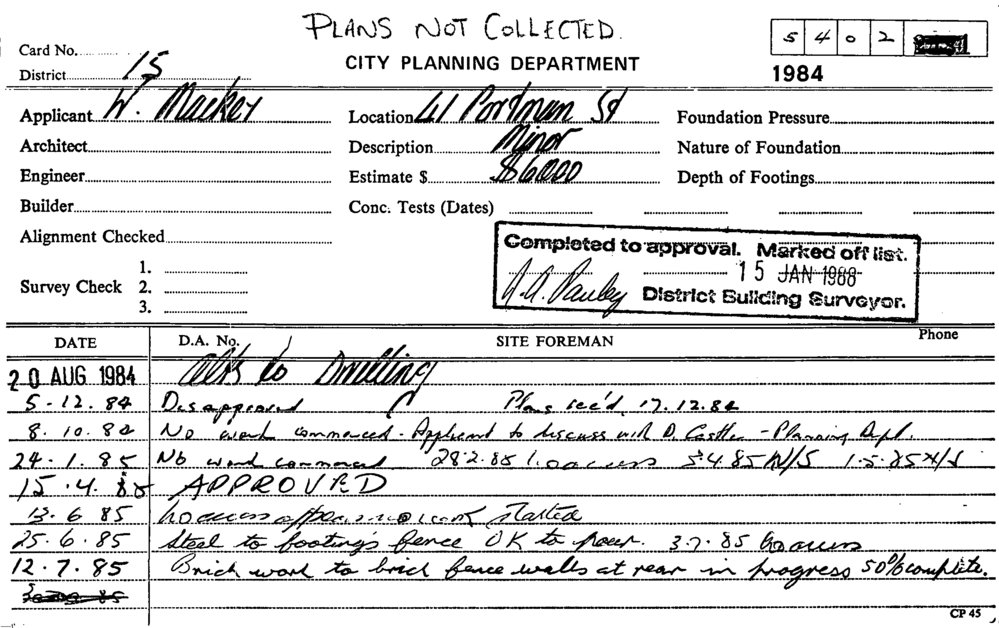 PLANS NOT COLLECTED.
5 4 0 2
Card No.
District 15
CITY PLANNING DEPARTMENT
1984
Applicant W. Mackey
Location 41 Portman St
Foundation Pressure
Architect
Description Minor
Nature of Foundation
Engineer
Estimate $ $6000
Depth of Footings
Builder
Conc. Tests (Dates)
Alignment Checked
Completed to approval. Marked off list.
15 JAN 1988
District Building Surveyor.
Survey Check 1.
2.
3.
DATE D.A. No. SITE FOREMAN Phone
20 AUG 1984 Alts to Dwelling
5.12.84 Disapproved Plans rec'd. 17.12.84
8.10.84 No work commenced - Applicant to discuss with D. Castle - Planning Dept.
24.1.85 No work commenced 28.2.85 No access 3.4.85 N/S 1.5.85 N/S
15.4.85 APPROVED
13.6.85 No access appears no work started
25.6.85 Steel to footings fence OK to pour. 3.7.85 No access
12.7.85 Brick work to brick fence walls at rear in progress 50% complete.
CP 45